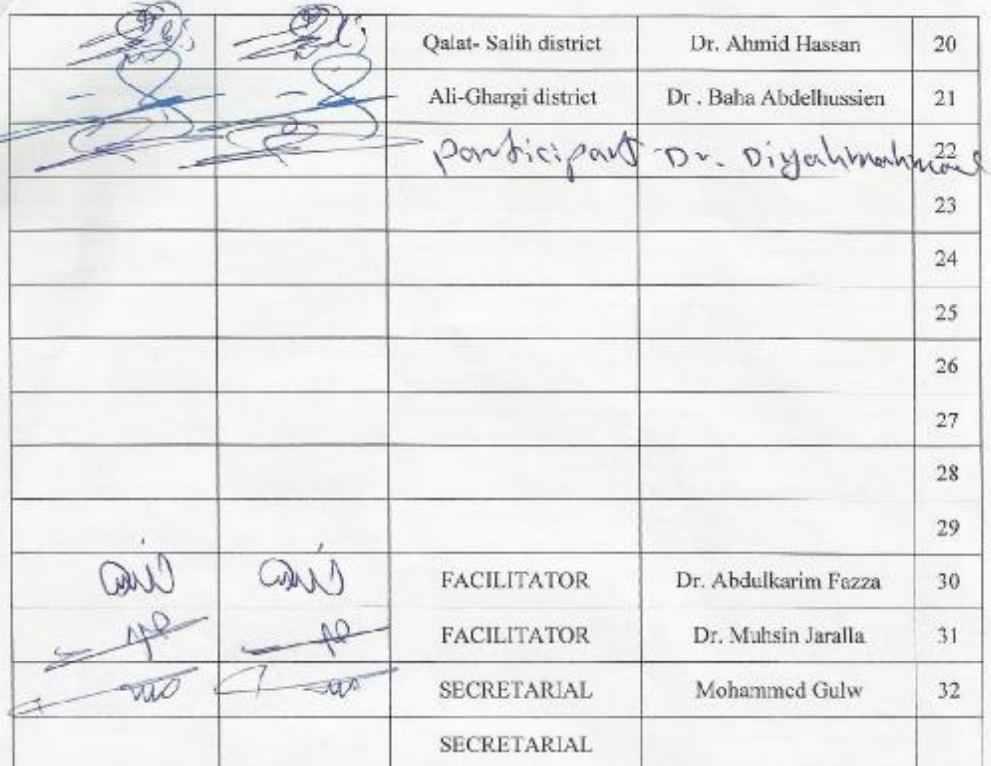 Qalat- Salih district Dr. Ahmid Hassan 20
Ali-Ghargi district Dr . Baha Abdelhussien 21
participant Dr. 22
23
24
25
26
27
28
29
FACILITATOR Dr. Abdulkarim Fazza 30
FACILITATOR Dr. Muhsin Jaralla 31
SECRETARIAL Mohammed Gulw 32
SECRETARIAL